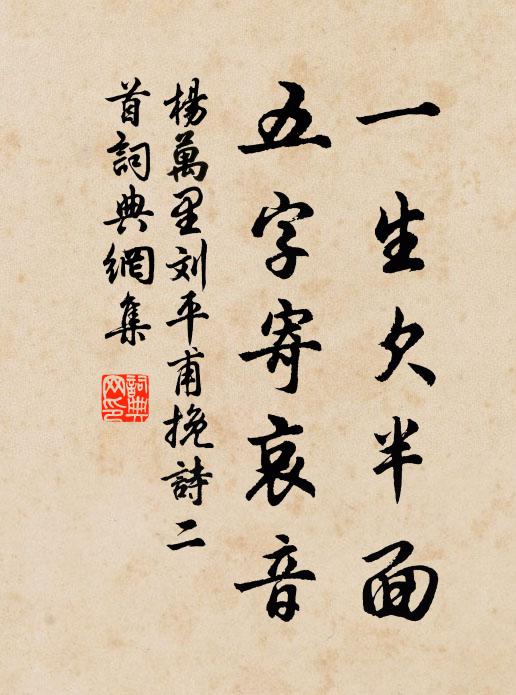 一生欠半面
五字寄哀音
楊萬里刘平甫挽詩二
首詞典網集
詞典
网印